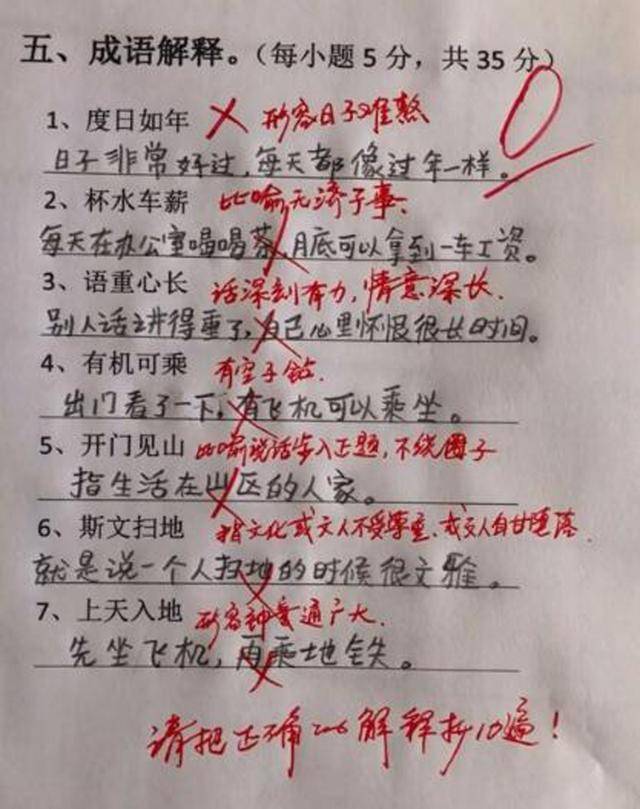 五、成语解释。（每小题5分，共35分）
0
1、度日如年 形容日子难熬
日子非常好过，每天都像过年一样。
2、杯水车薪 比喻无济于事、
每天在办公室喝喝茶，月底可以拿到一车工资。
3、语重心长 话深刻有力，情意深长．
别人话讲得重了，自己心里怀恨很长时间。
4、有机可乘 有空子钻．
出门看了一下，有飞机可以乘坐。
5、开门见山 比喻说话步入正题，不绕圈子
指生活在山区的人家。
6、斯文扫地 指文化或文人不受尊重、或文人自甘堕落．
就是说一个人扫地的时候很文雅。
7、上天入地 形容神通广大．
先坐飞机，再乘地铁。
请把正确的解释抄10遍！